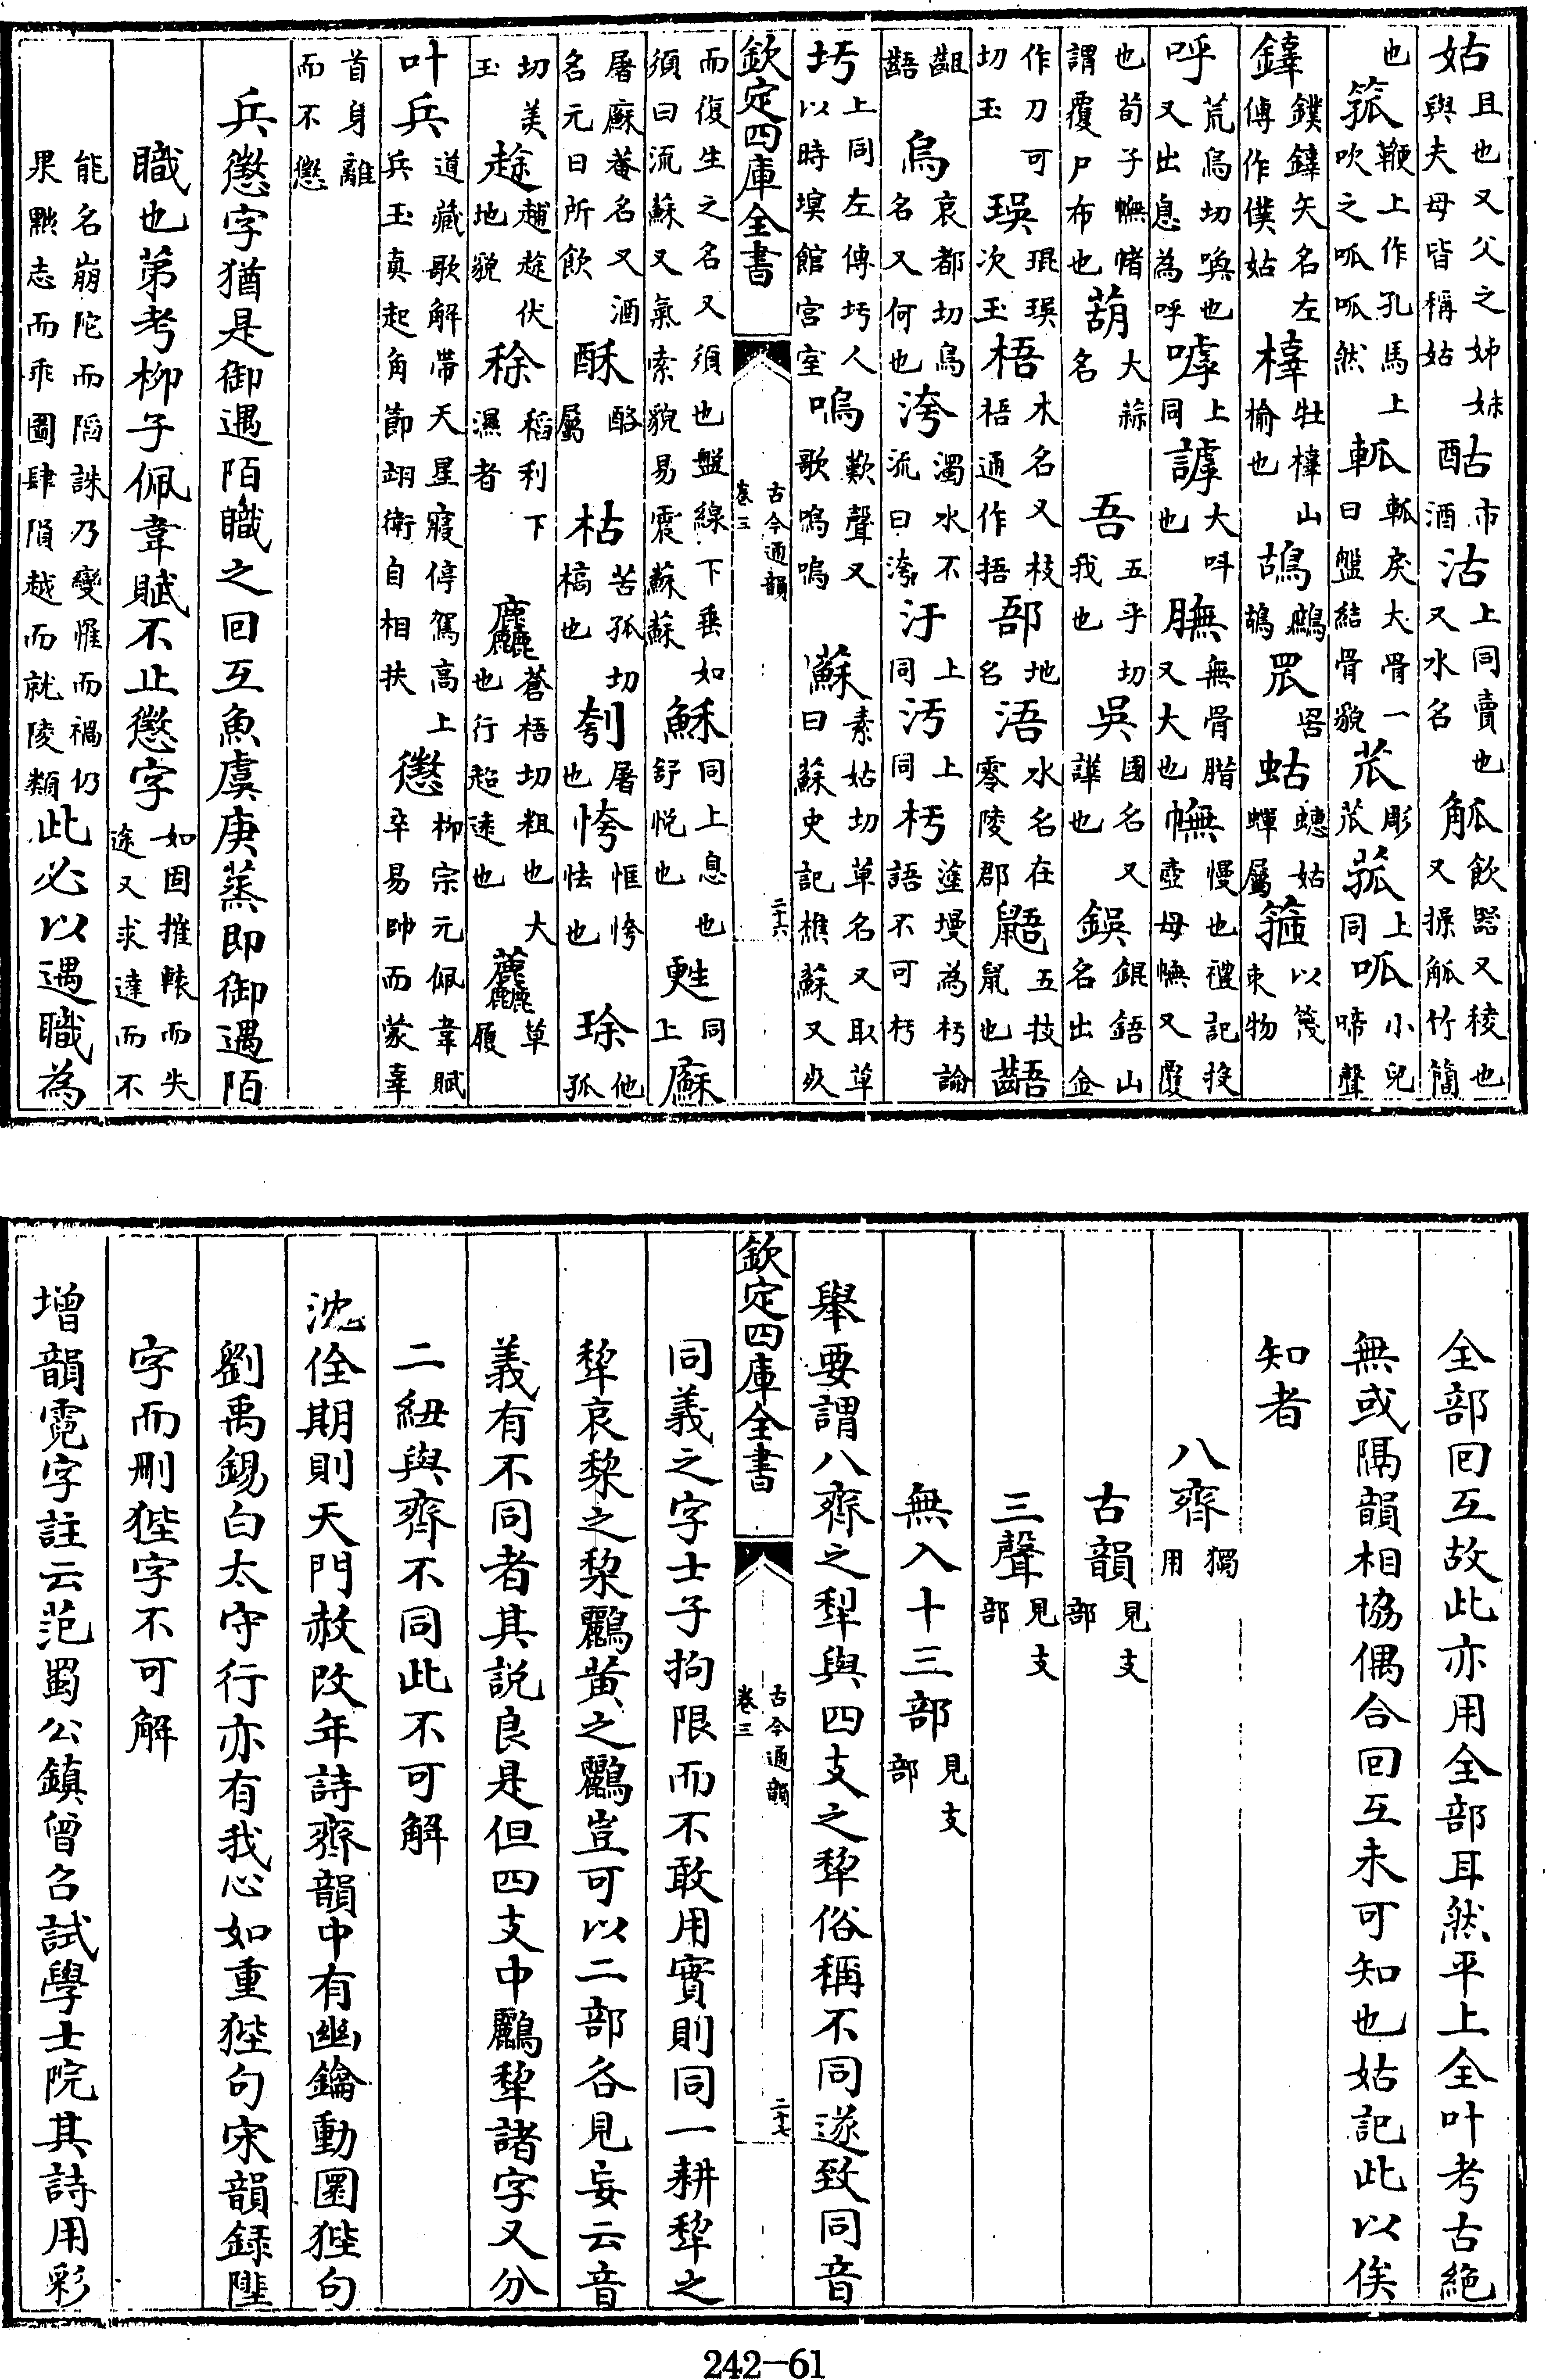 姑且也又父之姊妹與夫母皆稱姑酤市酒沽上同賣也又水名觚飲器又稜也又操觚竹簡
也箛鞭上作孔馬上吹之呱呱然軱軱戾大骨一曰盤結骨貌苽彫苽菰上同呱小兒啼聲
鏷矢名左傳作僕姑橭牡橭山榆也鴣鷓鴣罛罟蛄蟪蛄蟬屬箍以篾束物
呼荒烏切喚也又出息為呼嘑上同謼大叫也膴無骨腊又大也幠慢也禮記投壺母幠又覆
也荀子幠帾謂覆尸布也葫大蒜名吾五乎切我也吳國名又譁也鋘錕鋙山名出金
作刀可切玉珸琨珸次玉梧木名又枝梧通作捂郚地名浯水名在零陵郡鼯五技鼠也齬
齟齬烏哀都切烏名又何也洿濁水不流曰洿汙上同污上同杇塗墁為杇論語不可杇
圬上同左傳圬人以時塓館宮室嗚歎聲又歌嗚嗚蘇素姑切草名又取草曰蘇史記樵蘇又死
欽定四庫全書 古今通韻 卷三 二十六
而復生之名又須也盤線下垂如須曰流蘇又氣索貌易震蘇蘇穌同上息也舒悅也甦同上㢝
屠㢝菴名又酒名元日所飲酥酪屬枯苦孤切槁也刳屠也恗恇恗怯也㻌他孤
切美玉伏地貌稌稻利下濕者麤蒼梧切粗也大也行超遠也草履
叶兵道藏歌解帶天星寢停駕高上兵玉真起角節翊衛自相扶懲柳宗元佩韋賦卒易帥而蒙辜
首身離而不懲
兵懲字猶是御遇陌職之回互魚虞庚蒸即御遇陌
職也苐考柳子佩韋賦不止懲字如固摧轅而失途又求達而不
能名崩陀而䧟誅乃變惟而禍仍果黜志而乖圖肆隕越而就陵類此必以遇職為
全部回互故此亦用全部耳然平上全叶考古絕
無或隔韻相協偶合回互未可知也姑記此以俟
知者
八齊獨用
古韻見支部
三聲見支部
無入十三部見支部
舉要謂八齊之犁與四支之犂俗稱不同遂致同音
欽定四庫全書 古今通韻 卷三 二十七
同義之字士子拘限而不敢用實則同一耕犂之
犂哀黎之黎鸝黃之鸝豈可以二部各見妄云音
義有不同者其說良是但四支中鸝犂諸字又分
二紐與齊不同此不可解
沈佺期則天門赦改年詩齊韻中有幽鑰動圜狴句
劉禹錫白太守行亦有我心如重狴句宋韻錄陛
字而刪狴字不可解
增韻霓字註云范蜀公鎮曾召試學士院其詩用彩
242-61